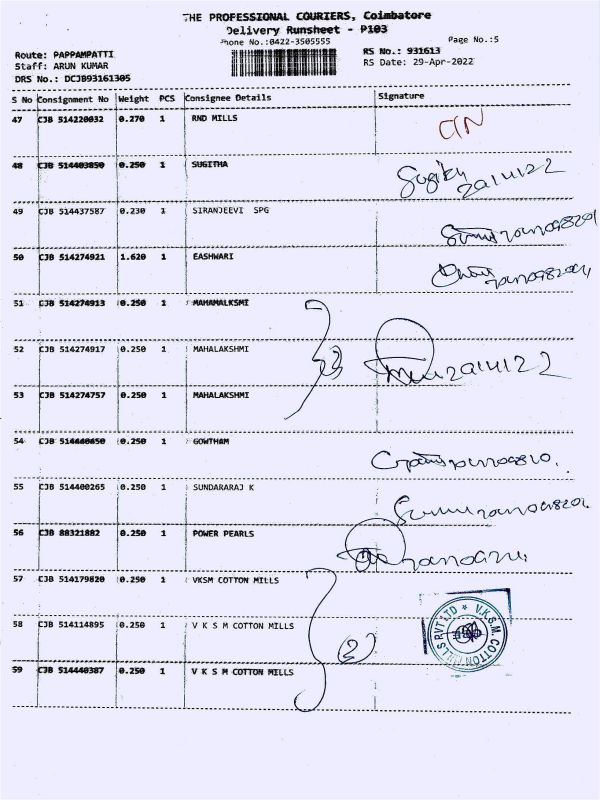 THE PROFESSIONAL COURIERS, Coimbatore
Delivery Runsheet - P103
Phone No.:0422-3505555
Page No.:5
Route: PAPPAMPATTI
RS No.: 931613
Staff: ARUN KUMAR
RS Date: 29-Apr-2022
DRS No.: DCJB93161305
S No Consignment No Weight PCS Consignee Details Signature
47 CJB 514220032 0.270 1 RND MILLS
48 CJB 514403850 0.250 1 SUGITHA
49 CJB 514437587 0.230 1 SIRANJEEVI SPG
50 CJB 514274921 1.620 1 EASHWARI
51 CJB 514274913 0.250 1 MAHAMALKSMI
52 CJB 514274917 0.250 1 MAHALAKSHMI
53 CJB 514274757 0.250 1 MAHALAKSHMI
54 CJB 514440450 0.250 1 GOWTHAM
55 CJB 514400265 0.250 1 SUNDARARAJ K
56 CJB 88321882 0.250 1 POWER PEARLS
57 CJB 514179820 0.250 1 VKSM COTTON MILLS
58 CJB 514114895 0.250 1 V K S M COTTON MILLS
2
V.K.S.M. COTTON MILLS PVT LTD
59 CJB 514440387 0.250 1 V K S M COTTON MILLS